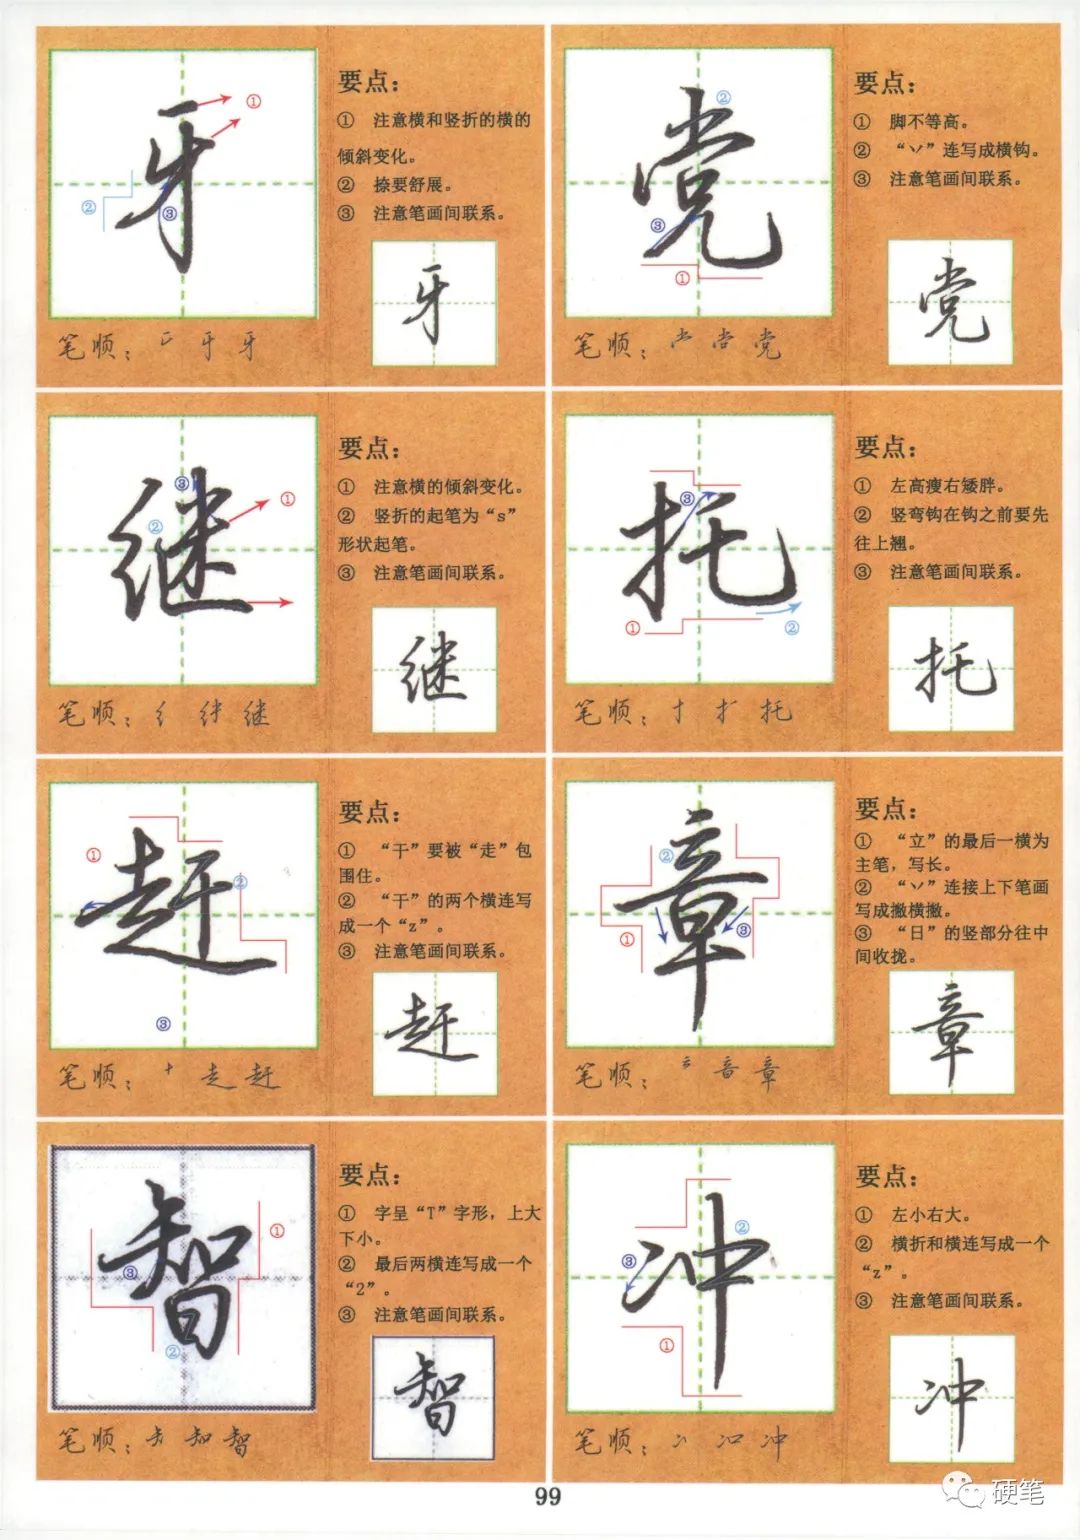 牙
①
②
③
要点：
① 注意横和竖折的横的
倾斜变化。
② 捺要舒展。
③ 注意笔画间联系。
牙
笔顺：牙
党
②
③
①
要点：
① 脚不等高。
② “丷”连写成横钩。
③ 注意笔画间联系。
党
笔顺：党
继
③
①
②
要点：
① 注意横的倾斜变化。
② 竖折的起笔为“s”
形状起笔。
③ 注意笔画间联系。
继
笔顺：纟 继
托
③
①
②
要点：
① 左高瘦右矮胖。
② 竖弯钩在钩之前要先
往上翘。
③ 注意笔画间联系。
托
笔顺：托
赶
①
②
③
要点：
① “干”要被“走”包
围住。
② “干”的两个横连写
成一个“z”。
③ 注意笔画间联系。
赶
笔顺：十 走 赶
章
②
①
③
要点：
① “立”的最后一横为
主笔，写长。
② “丷”连接上下笔画
写成撇横撇。
③ “日”的竖部分往中
间收拢。
章
笔顺：音 章
智
①
③
②
要点：
① 字呈“T”字形，上大
下小。
② 最后两横连写成一个
“2”。
③ 注意笔画间联系。
智
笔顺：知 智
冲
②
③
①
要点：
① 左小右大。
② 横折和横连写成一个
“z”。
③ 注意笔画间联系。
冲
笔顺：冫 冲
99
硬笔